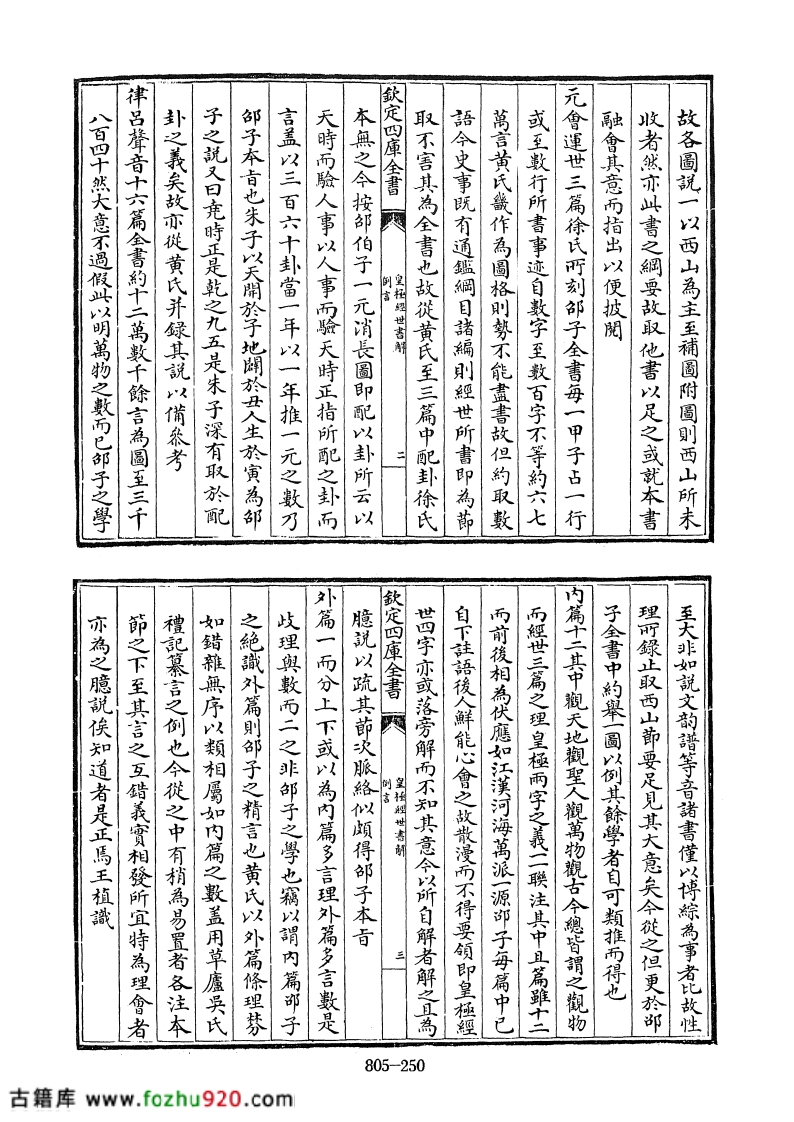 故各圖說一以西山為主至補圖附圖則西山所未
收者然亦此書之綱要故取他書以足之或就本書
融會其意而指出以便披閱
元會運世三篇徐氏所刻邵子全書每一甲子占一行
或至數行所書事迹自數字至數百字不等約六七
萬言黃氏畿作為圖格則勢不能盡書故但約取數
語今史事既有通鑑綱目諸編則經世所書即為節
取不害其為全書也故從黃氏至三篇中配卦徐氏
欽定四庫全書
皇極經世書解
例言
二
本無之今按邵伯子一元消長圖即配以卦所云以
天時而驗人事以人事而驗天時正指所配之卦而
言蓋以三百六十卦當一年以一年推一元之數乃
邵子本旨也朱子以天開於子地闢於丑人生於寅為邵
子之說又曰堯時正是乾之九五是朱子深有取於配
卦之義矣故亦從黃氏并録其說以備參考
律呂聲音十六篇全書約十二萬數千餘言為圖至三千
八百四十然大意不過假此以明萬物之數而已邵子之學
至大非如說文韵譜等音諸書僅以博綜為事者比故性
理所錄止取西山節要足見其大意矣今從之但更於邵
子全書中約舉一圖以例其餘學者自可類推而得也
內篇十二其中觀天地觀聖人觀萬物觀古今總皆謂之觀物
而經世三篇之理皇極兩字之義一一聯注其中且篇雖十二
而前後相為伏應如江漢河海萬派一源邵子每篇中已
自下註語後人鮮能心會之故散漫而不得要領即皇極經
世四字亦或落旁解而不知其意今以所自解者解之且為
欽定四庫全書
皇極經世書解
例言
三
臆說以疏其節次脈絡似頗得邵子本旨
外篇一而分上下或以為內篇多言理外篇多言數是
歧理與數而二之非邵子之學也竊以謂內篇邵子
之絕識外篇則邵子之精言也黃氏以外篇條理棼
如錯雜無序以類相屬如內篇之數蓋用草廬吳氏
禮記纂言之例也今從之中有稍為易置者各注本
節之下至其言之互錯義實相發所宜特為理會者
亦為之臆說俟知道者是正焉王植識
805-250
古籍库 www.fozhu920.com